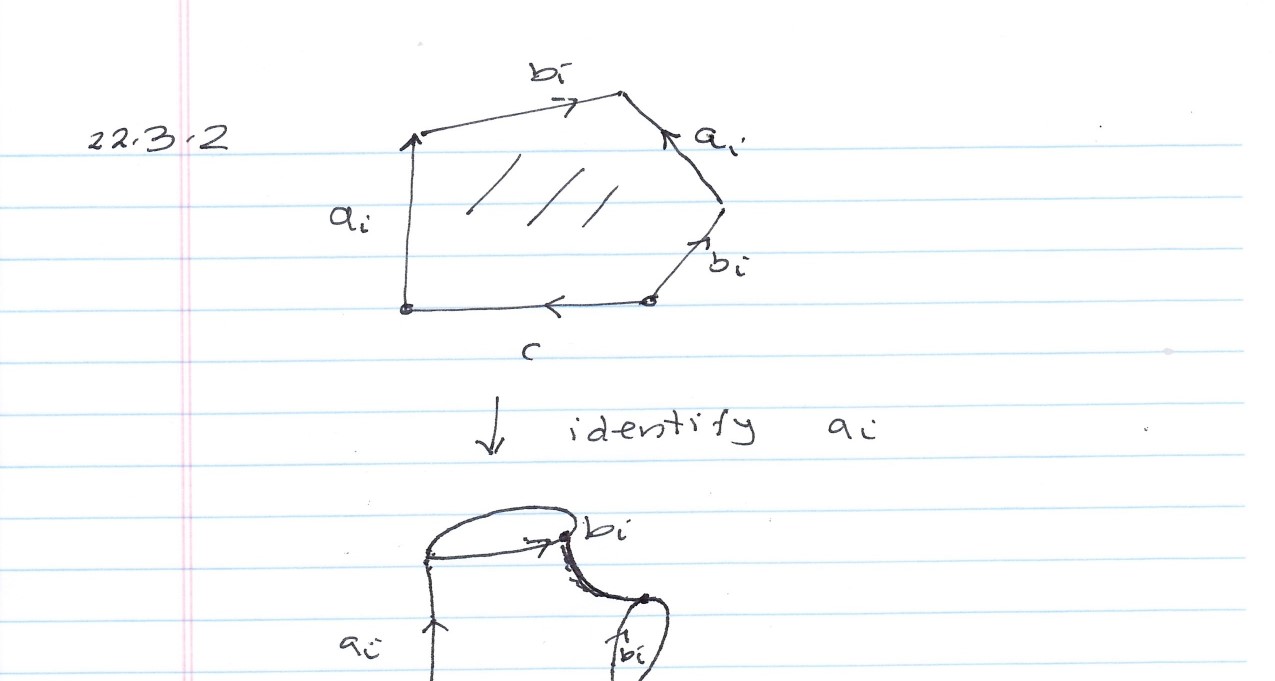 bi
22.3.2
ai
ai
bi
c
identify ai
bi
ai
bi